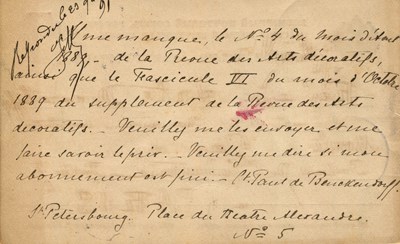 Il me manque, le No. 4 du mois d'Août
1889 - de la Revue des Arts décoratifs,
ainsi que le Fascicule VI du mois d'Octobre
1889 du supplément de la Revue des Arts
décoratifs. - Veuillez me les envoyer et me
faire savoir le prix. - Veuillez me dire si mon
abonnement est fini. - Ct. Paul de Benckendorff.
St. Petersbourg. Place du Theatre Alexandre.
No 5